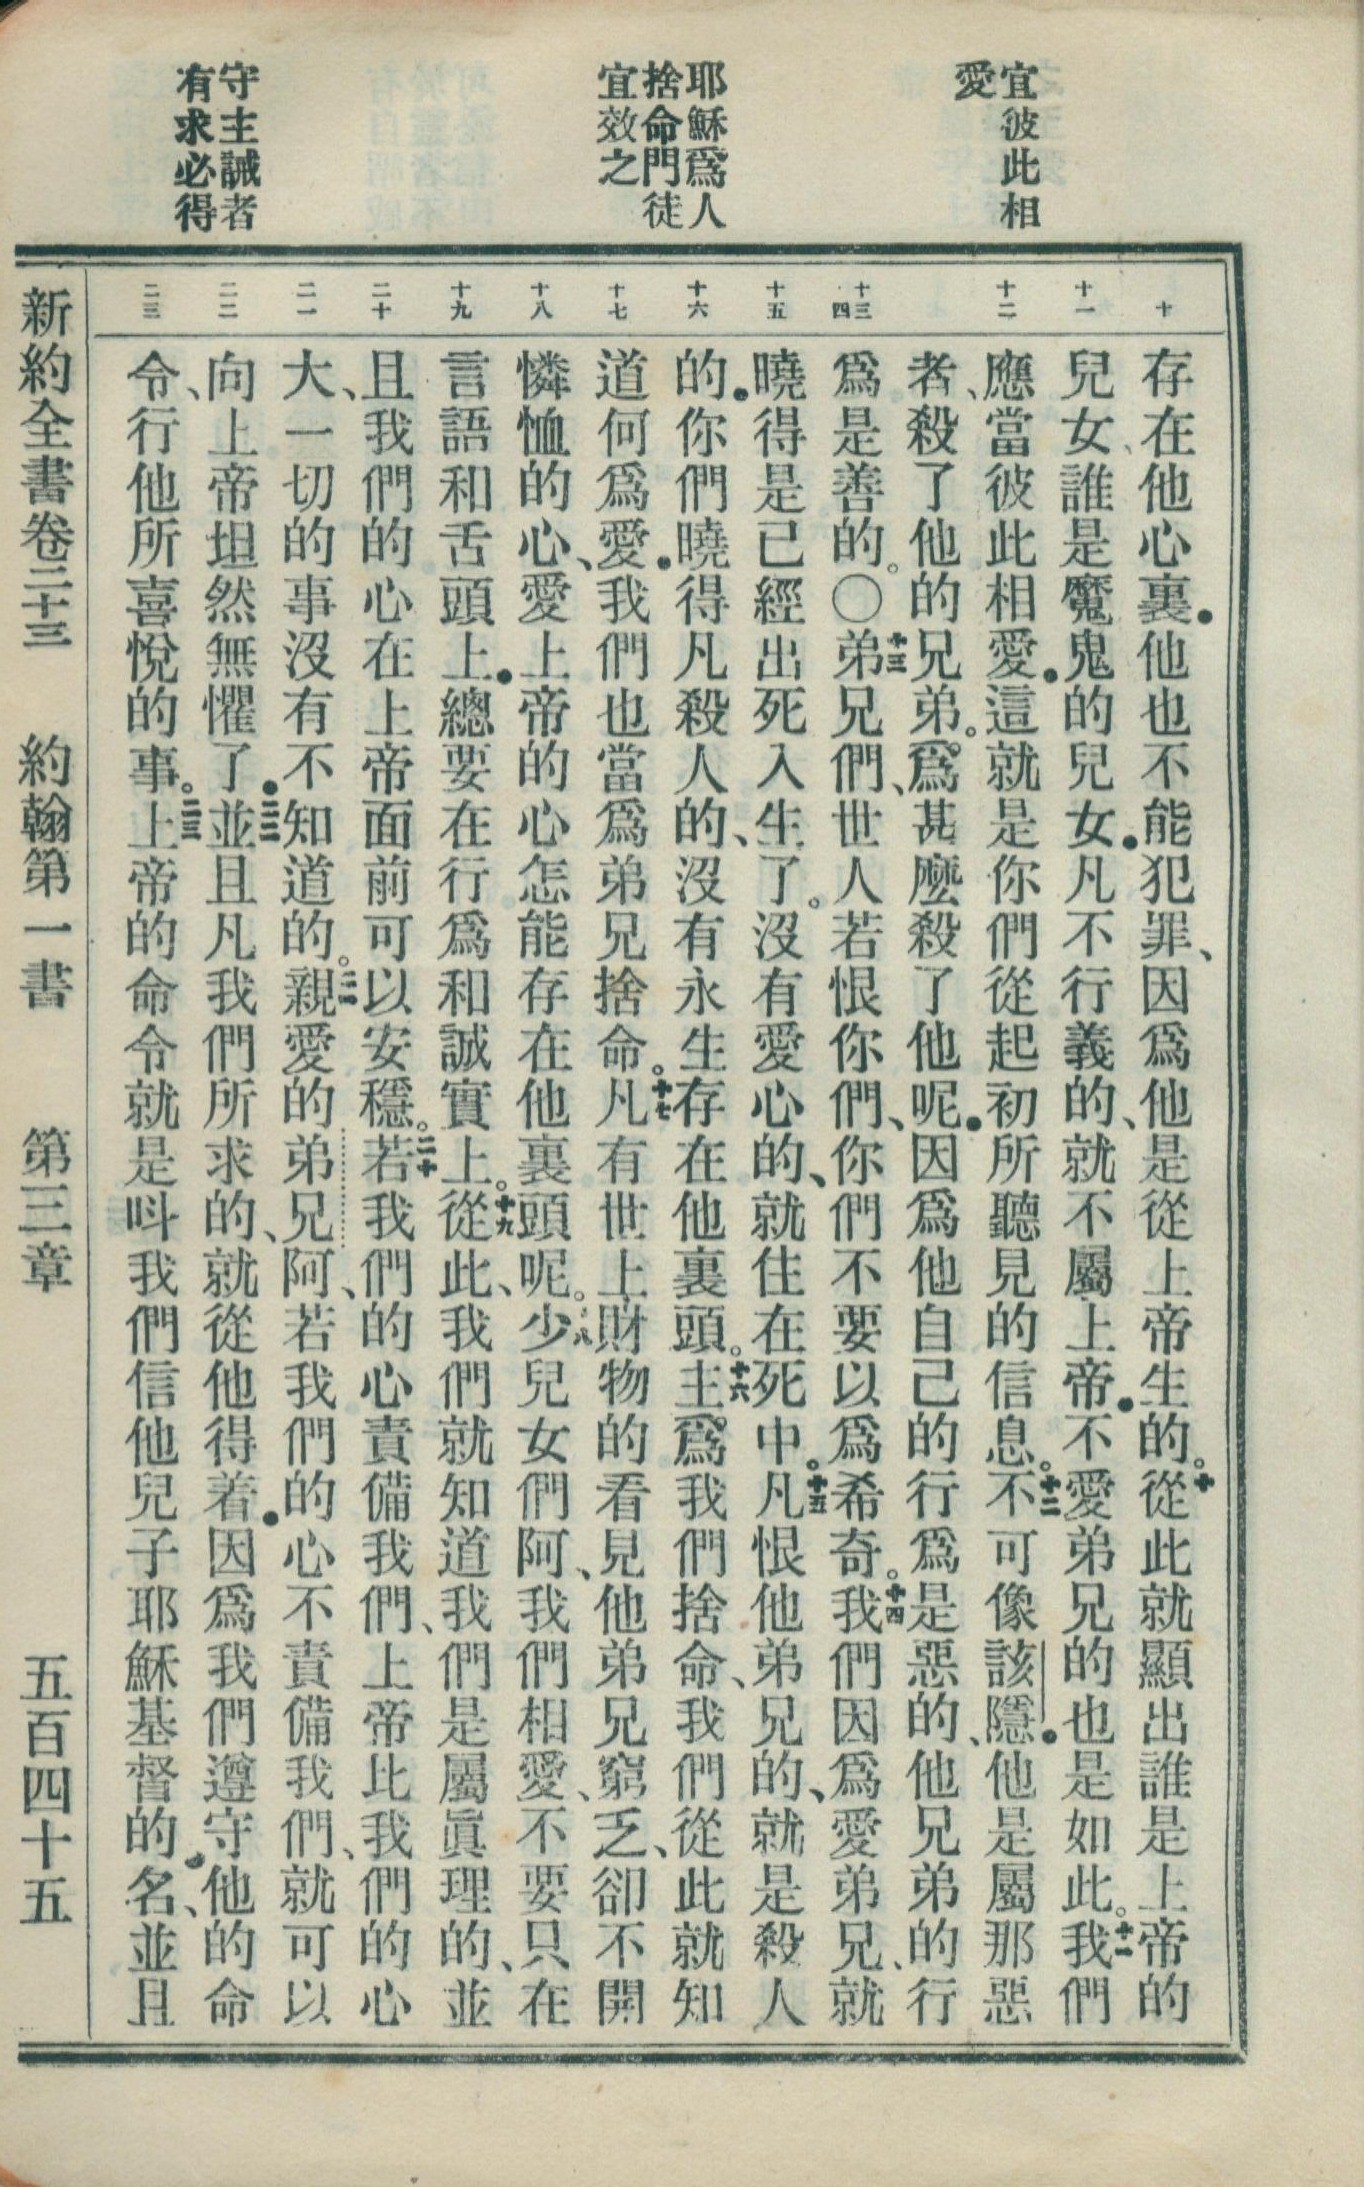 宜彼此相
愛
耶穌爲人
捨命門徒
宜效之
守主誡者
有求必得
十
十一
十二
十三
十四
十五
十六
十七
十八
十九
二十
二一
二二
二三
存在他心裏•他也不能犯罪、因爲他是從上帝生的。十從此就顯出誰是上帝的
兒女、誰是魔鬼的兒女•凡不行義的、就不屬上帝•不愛弟兄的也是如此。十一我們
應當彼此相愛•這就是你們從起初所聽見的信息。十二不可像該隱•他是屬那惡
者、殺了他的兄弟。爲甚麼殺了他呢•因爲他自己的行爲是惡的、他兄弟的行
爲是善的。〇十三弟兄們、世人若恨你們、你們不要以爲希奇。十四我們因爲愛弟兄、就
曉得是已經出死入生了。沒有愛心的、就住在死中。十五凡恨他弟兄的、就是殺人
的•你們曉得凡殺人的、沒有永生存在他裏頭。十六主爲我們捨命、我們從此就知
道何爲愛•我們也當爲弟兄捨命。十七凡有世上財物的看見他弟兄窮乏、卻不開
憐恤的心、愛上帝的心怎能存在他裏頭呢。十八少兒女們阿、我們相愛、不要只在
言語和舌頭上•總要在行爲和誠實上。十九從此、我們就知道我們是屬眞理的、並
且我們的心在上帝面前可以安穩。二十若我們的心責備我們、上帝比我們的心
大、一切的事沒有不知道的。二一親愛的弟兄阿、若我們的心不責備我們、就可以
向上帝坦然無懼了•二二並且凡我們所求的、就從他得着•因爲我們遵守他的命
令、行他所喜悅的事。二三上帝的命令就是呌我們信他兒子耶穌基督的名、並且
新約全書卷二十三 約翰第一書 第三章 五百四十五